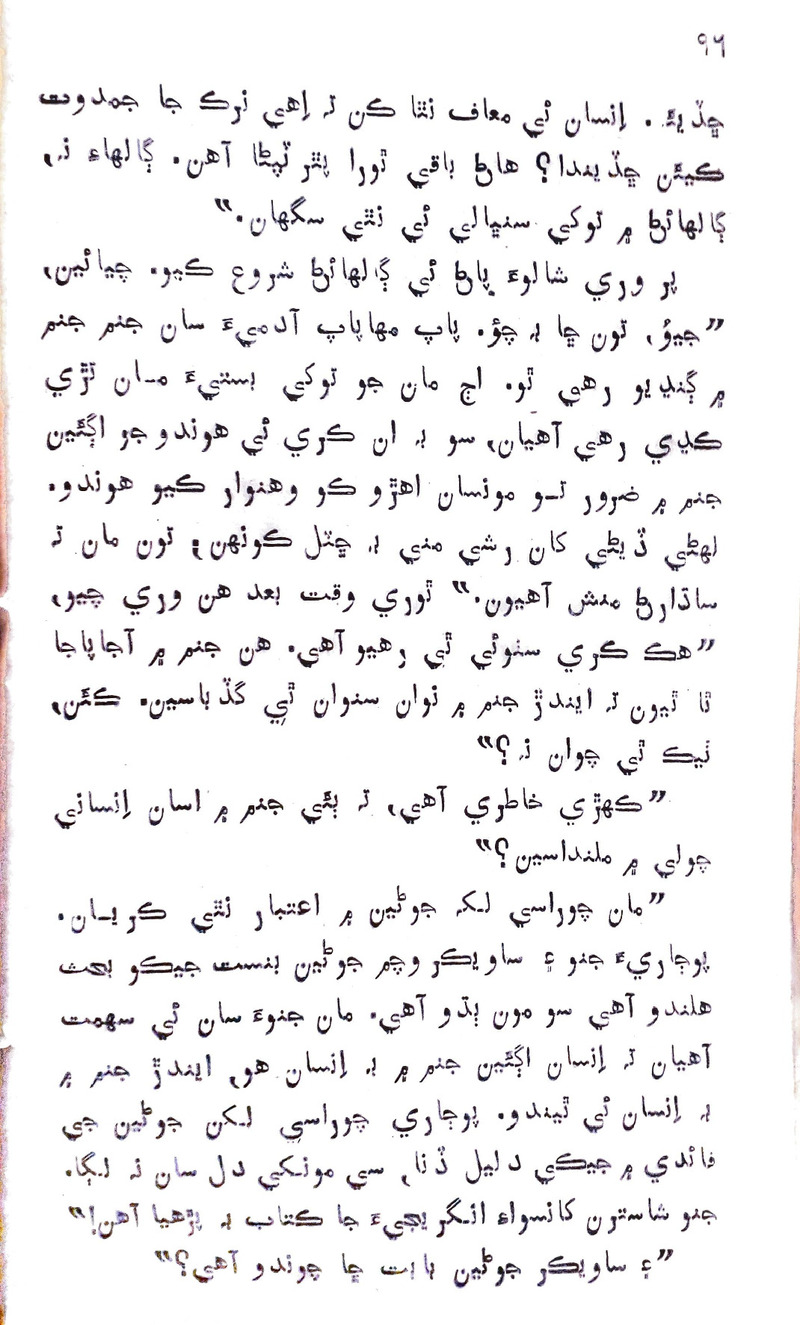 ۹٦
ڇڏيئہ. اِنسان ئي معاف نٿا ڪن تہ اِهي نرڪ جا جمدوت
ڪيئن ڇڏيندا؟ هاڻ باقي ٿورا پٿر ٽپڻا آهن. ڳالهاءِ نہ،
ڳالهائڻ ۾ توکي سنڀالي ئي نٿي سگهان.”
پر وري شالوءَ پاڻ ئي ڳالهائڻ شروع ڪيو. چيائين،
”جيؤ، تون ڇا بہ چؤ. پاپ مهاپاپ آدميءَ سان جنم جنم
۾ ڳنڍيو رهي ٿو. اڄ مان جو توکي بستيءَ مـان تڙي
ڪڍي رهي آهيان، سو بہ ان ڪري ئي هوندو جو اڳئين
جنم ۾ ضرور تـو مونسان اهڙو ڪو وهنوار ڪيو هوندو.
لهڻي ڏيڻي کان رشي مني بہ ڇٽل ڪونهن؛ تون مان تہ
ساڌارڻ منش آهيون.” ٿوري وقت بعد هن وري چيو،
”هڪ ڪري سٺوئي ٿي رهيو آهي. هن جنم ۾ آجاپاجا
ٿا ٿيون تہ ايندڙ جنم ۾ نوان سنوان ٿي گڏباسين. ڪئن،
ٺيڪ ٿي چوان نہ؟”
”ڪهڙي خاطري آهي، تہ ٻئي جنم ۾ اسان اِنساني
چولي ۾ ملنداسين؟”
”مان چوراسي لـک جوڻين ۾ اعتبار نٿي ڪريـان.
پوڄاريءَ جنو ۽ ساويڪر وچم جوڻين بنست جيڪو بحث
هلندو آهي سو مون ٻڌو آهي. مان جنوءَ سان ئي سهمت
آهيان تہ اِنسان اڳئين جنم ۾ بہ اِنسان هو، ايندڙ جنم ۾
بہ اِنسان ئي ٿيندو. پوڄاري چوراسي لـکن جوڻين جي
فائدي ۾ جيڪي دليل ڏنا، سي مونـکي دل سان نہ لـڳا.
جنو شاسترن کانسواءِ انـگريجيءَ جا ڪتاب بہ پڙهيا آهن!”
”۽ ساويڪر جوڻين بابت ڇا چوندو آهي؟”